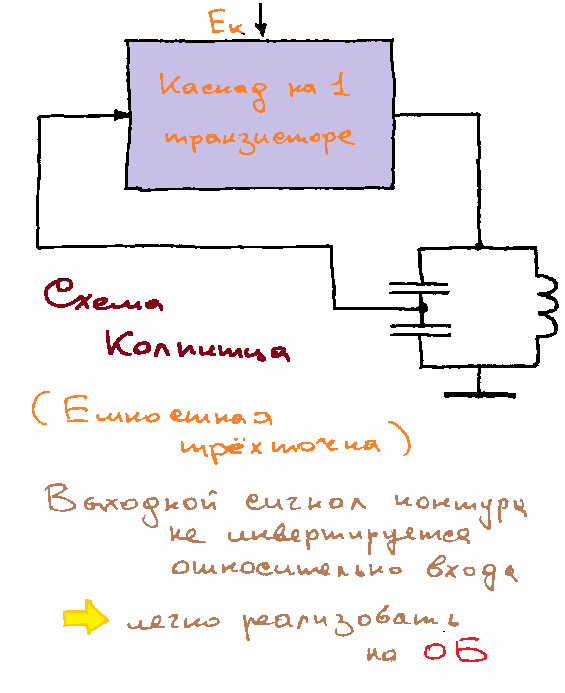 Ек
Каскад на 1
транзисторе
Схема
Колпитца
(Емкостная
трёхточка)
Выходной сигнал контура
не инвертируется
относительно входа
легко реализовать
на ОБ